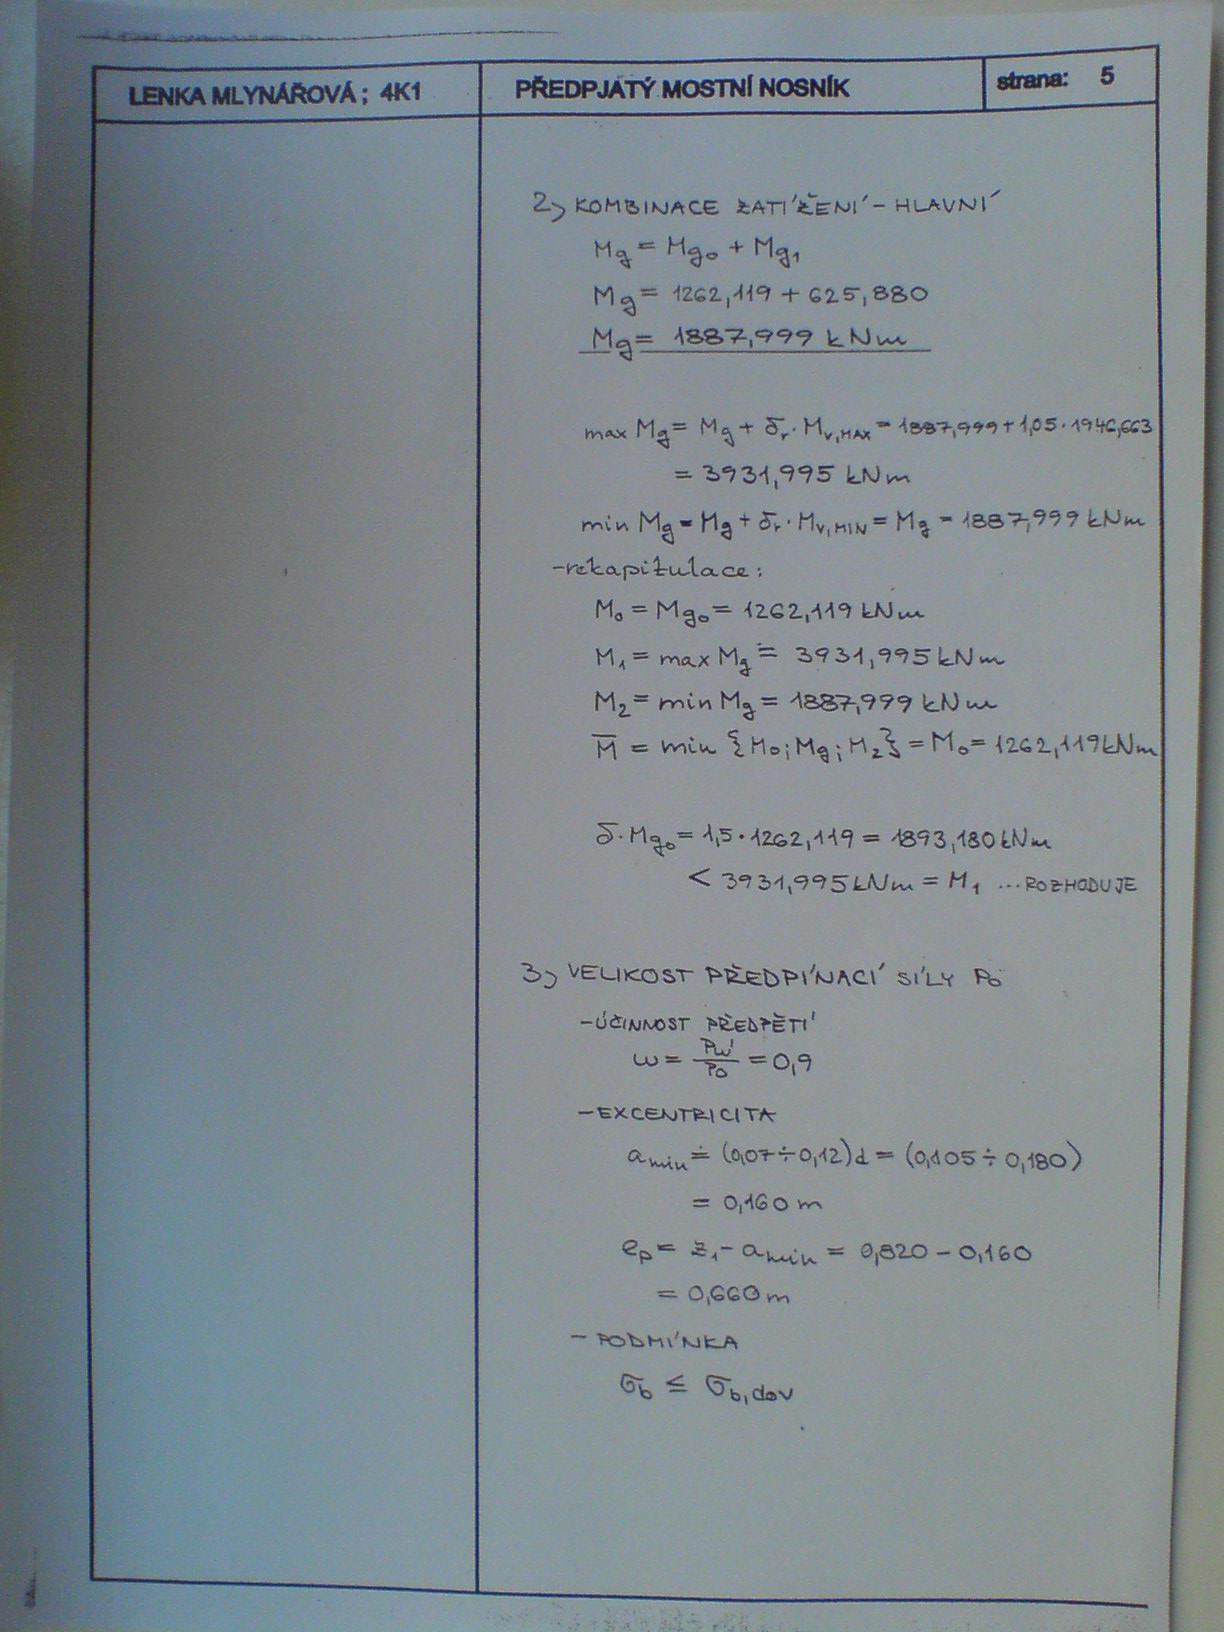 LENKA MLYNÁŘOVÁ ; 4K1
PŘEDPJATÝ MOSTNÍ NOSNÍK
strana: 5
2) KOMBINACE ZATÍŽENÍ - HLAVNÍ
Mg = Mg₀ + Mg₁
Mg = 1262,119 + 625,880
Mg = 1887,999 kNm
max Mg = Mg + δᵣ · Mv,MAX = 1887,999 + 1,05 · 1946,663
= 3931,995 kNm
min Mg = Mg + δᵣ · Mv,MIN = Mg = 1887,999 kNm
- rekapitulace:
M₀ = Mg₀ = 1262,119 kNm
M₁ = max Mg = 3931,995 kNm
M₂ = min Mg = 1887,999 kNm
M̅ = min {M₀; Mg; M₂} = M₀ = 1262,119 kNm
δ · Mg₀ = 1,5 · 1262,119 = 1893,180 kNm
< 3931,995 kNm = M₁ ... ROZHODUJE
3) VELIKOST PŘEDPÍNACÍ SÍLY P₀
- ÚČINNOST PŘEDPĚTÍ
ω = Pω'/P₀ = 0,9
- EXCENTRICITA
a min ≐ (0,07 ÷ 0,12)d = (0,105 ÷ 0,180)
= 0,160 m
eₚ = z₁ - a min = 0,820 - 0,160
= 0,660 m
- PODMÍNKA
σb ≤ σb,dov